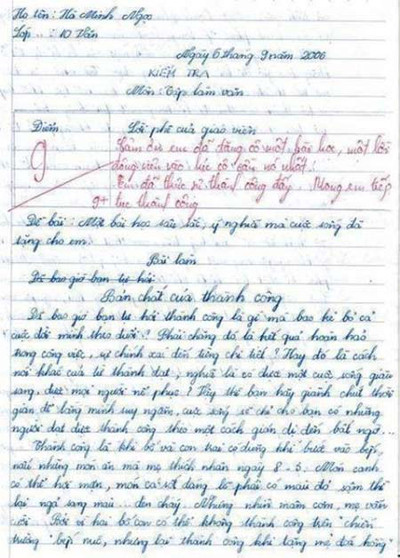 Họ tên: Hà Minh Ngọc
Lớp : 10 Văn
Ngày 6 tháng 9 năm 2006
KIỂM TRA
Môn: Tập làm văn
Điểm
Lời phê của giáo viên
9
Cảm ơn em đã tặng cô một bài học, một lời
động viên vào lúc cô cần nó nhất!
Em đã thực sự thành công đấy. Mong em tiếp
9+ tục thành công
Đề bài: Một bài học sâu sắc, ý nghĩa mà cuộc sống đã
tặng cho em.
Bài làm
Đã bao giờ bạn tự hỏi
Bản chất của thành công
Đã bao giờ bạn tự hỏi thành công là gì mà bao kẻ bỏ cả
cuộc đời mình theo đuổi? Phải chăng đó là kết quả hoàn hảo
trong công việc, sự chính xác đến từng chi tiết? Hay đó là cách
nói khác của từ thành đạt, nghĩa là có được một cuộc sống giàu
sang, được mọi người nể phục? Vậy thì bạn hãy giành chút thời
gian để lặng mình suy ngẫm, cuộc sống sẽ chỉ cho bạn có những
người đạt được thành công theo một cách giản dị đến bất ngờ...
Thành công là khi bố và con trai có dũng khí bước vào bếp,
nấu những món ăn mà mẹ thích nhân ngày 8 - 3. Món canh
có thể hơi mặn, món cá sốt đáng lẽ phải có màu đỏ sậm thì
lại ngả sang màu... đen cháy. Nhưng nhìn mâm cơm, mẹ vẫn
cười. Bởi vì hai bố con có thể không thành công trên "chiến
trường" bếp núc, nhưng lại thành công khi tặng mẹ "đoá hồng"